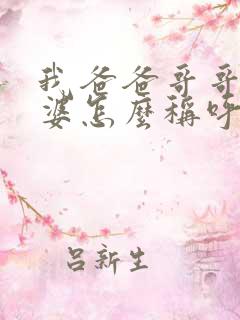 我爸爸哥哥
婆怎麼稱呼
吕新生